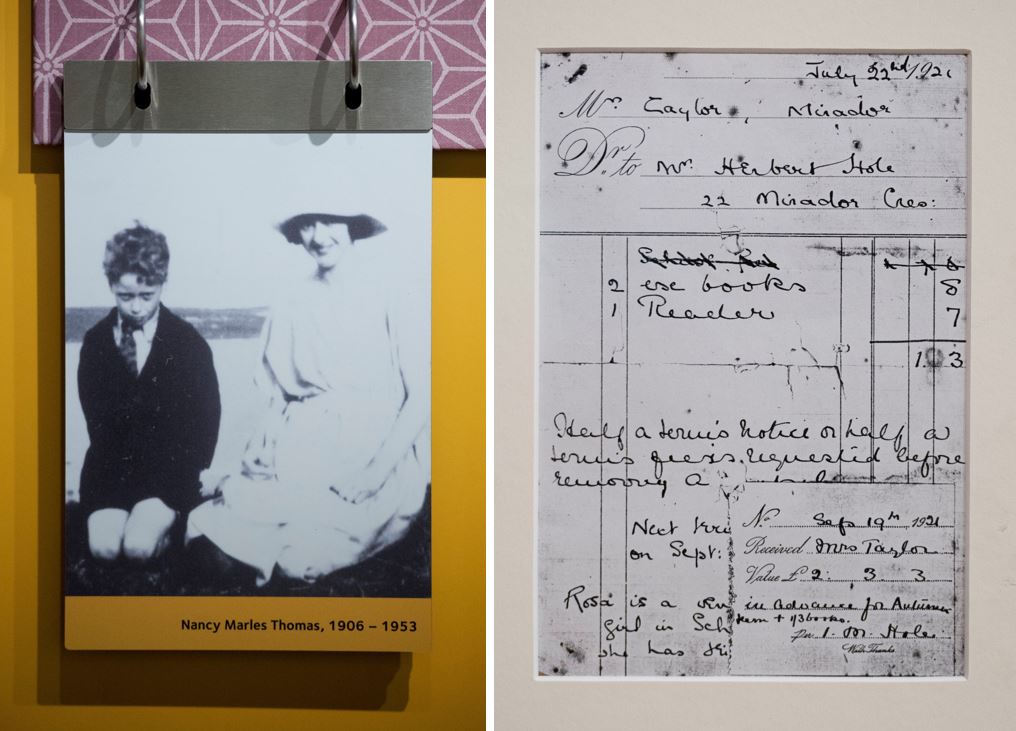 Nancy Marles Thomas, 1906 – 1953
July 22nd 1921
Mrs. Taylor, Mirador
Dr. to Mr. Herbert Hole
22 Mirador Cres:
2 exc books 8
1 Reader 7
1. 3
Half a term's notice or half a
term's fees requested before
removing a
Next
on Sept:
Rosa is a
girl in Sch
she has
No. Sep 19th 1921
Received Mrs Taylor
Value £ 2: 3. 3
in advance for Autumn
term + 1/3 books.
per I. M. Hole.
With Thanks